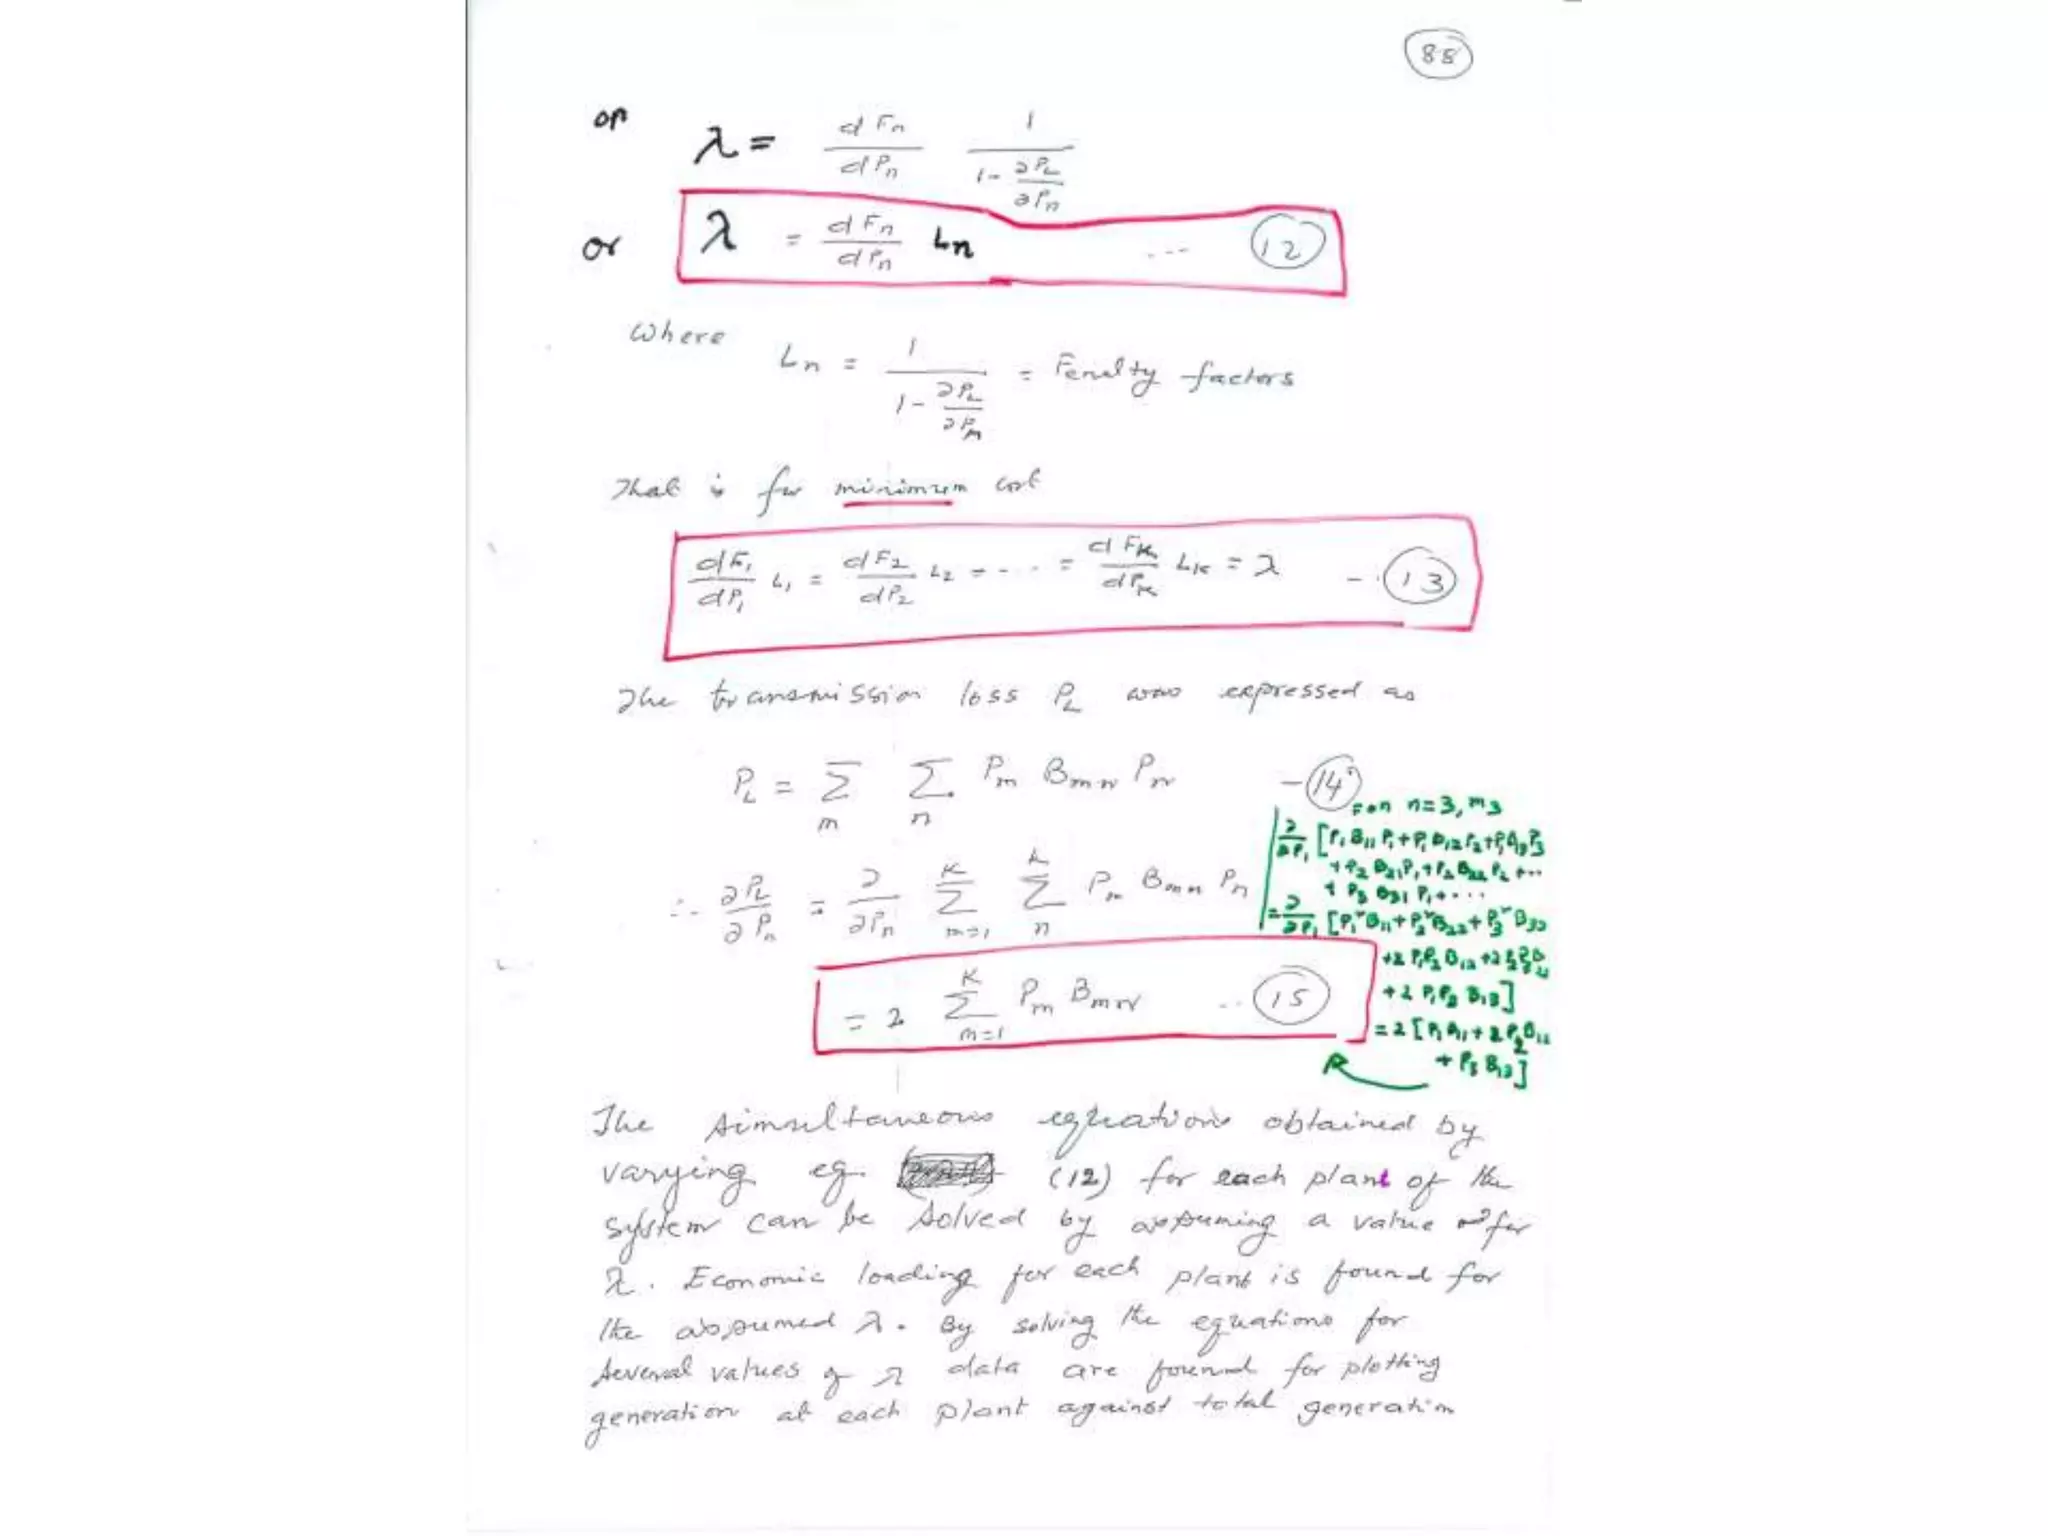 88
or λ = dFn/dPn 1/(1 - ∂PL/∂Pn)
or λ = dFn/dPn Ln ... (12)
Where Ln = 1/(1 - ∂PL/∂Pm) = Penalty factors
That is for minimum cost
dF1/dP1 L1 = dF2/dP2 L2 = - - - = dFK/dPK LK = λ - · (13)
The transmission loss PL was expressed as
PL = Σm Σn Pm Bmn Pn - (14)
∴ ∂PL/∂Pn = ∂/∂Pn Σ(m=1 to K) Σ(n to k) Pm Bmn Pn
= 2 Σ(m=1 to K) Pm Bmn .. (15)
For n=3, m3
∂/∂P1 [P1 B11 P1 + P1 B12 P2 + P1 B13 P3
+ P2 B21 P1 + P2 B22 P2 + ...
+ P3 B31 P1 + ...
= ∂/∂P1 [P1² B11 + P2² B22 + P3² B33
+2 P1P2 B12 +2 P2P3
+2 P1P3 B13]
= 2 [P1 B11 + 2 P2 B12
+ P3 B13]
The simultaneous equations obtained by
varying eq. (12) for each plant of the
system can be solved by assuming a value for
λ. Economic loading for each plant is found for
the assumed λ. By solving the equations for
several values of λ data are found for plotting
generation at each plant against total generation